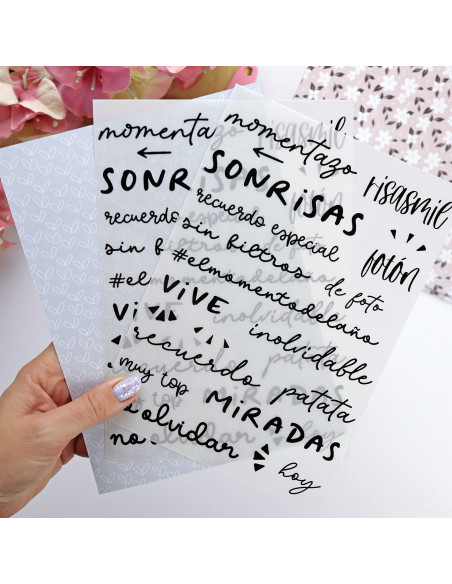 momentazo risasmil
SONRiSAS
recuerdo especial fotón
sin filtros de foto
#elmomentodelaño
ViVE inolvidable
recuerdo patata
muy top MiRADAS
olvidar hoy
momenta
SONR
recuerdo
sin
#el
Vi
no